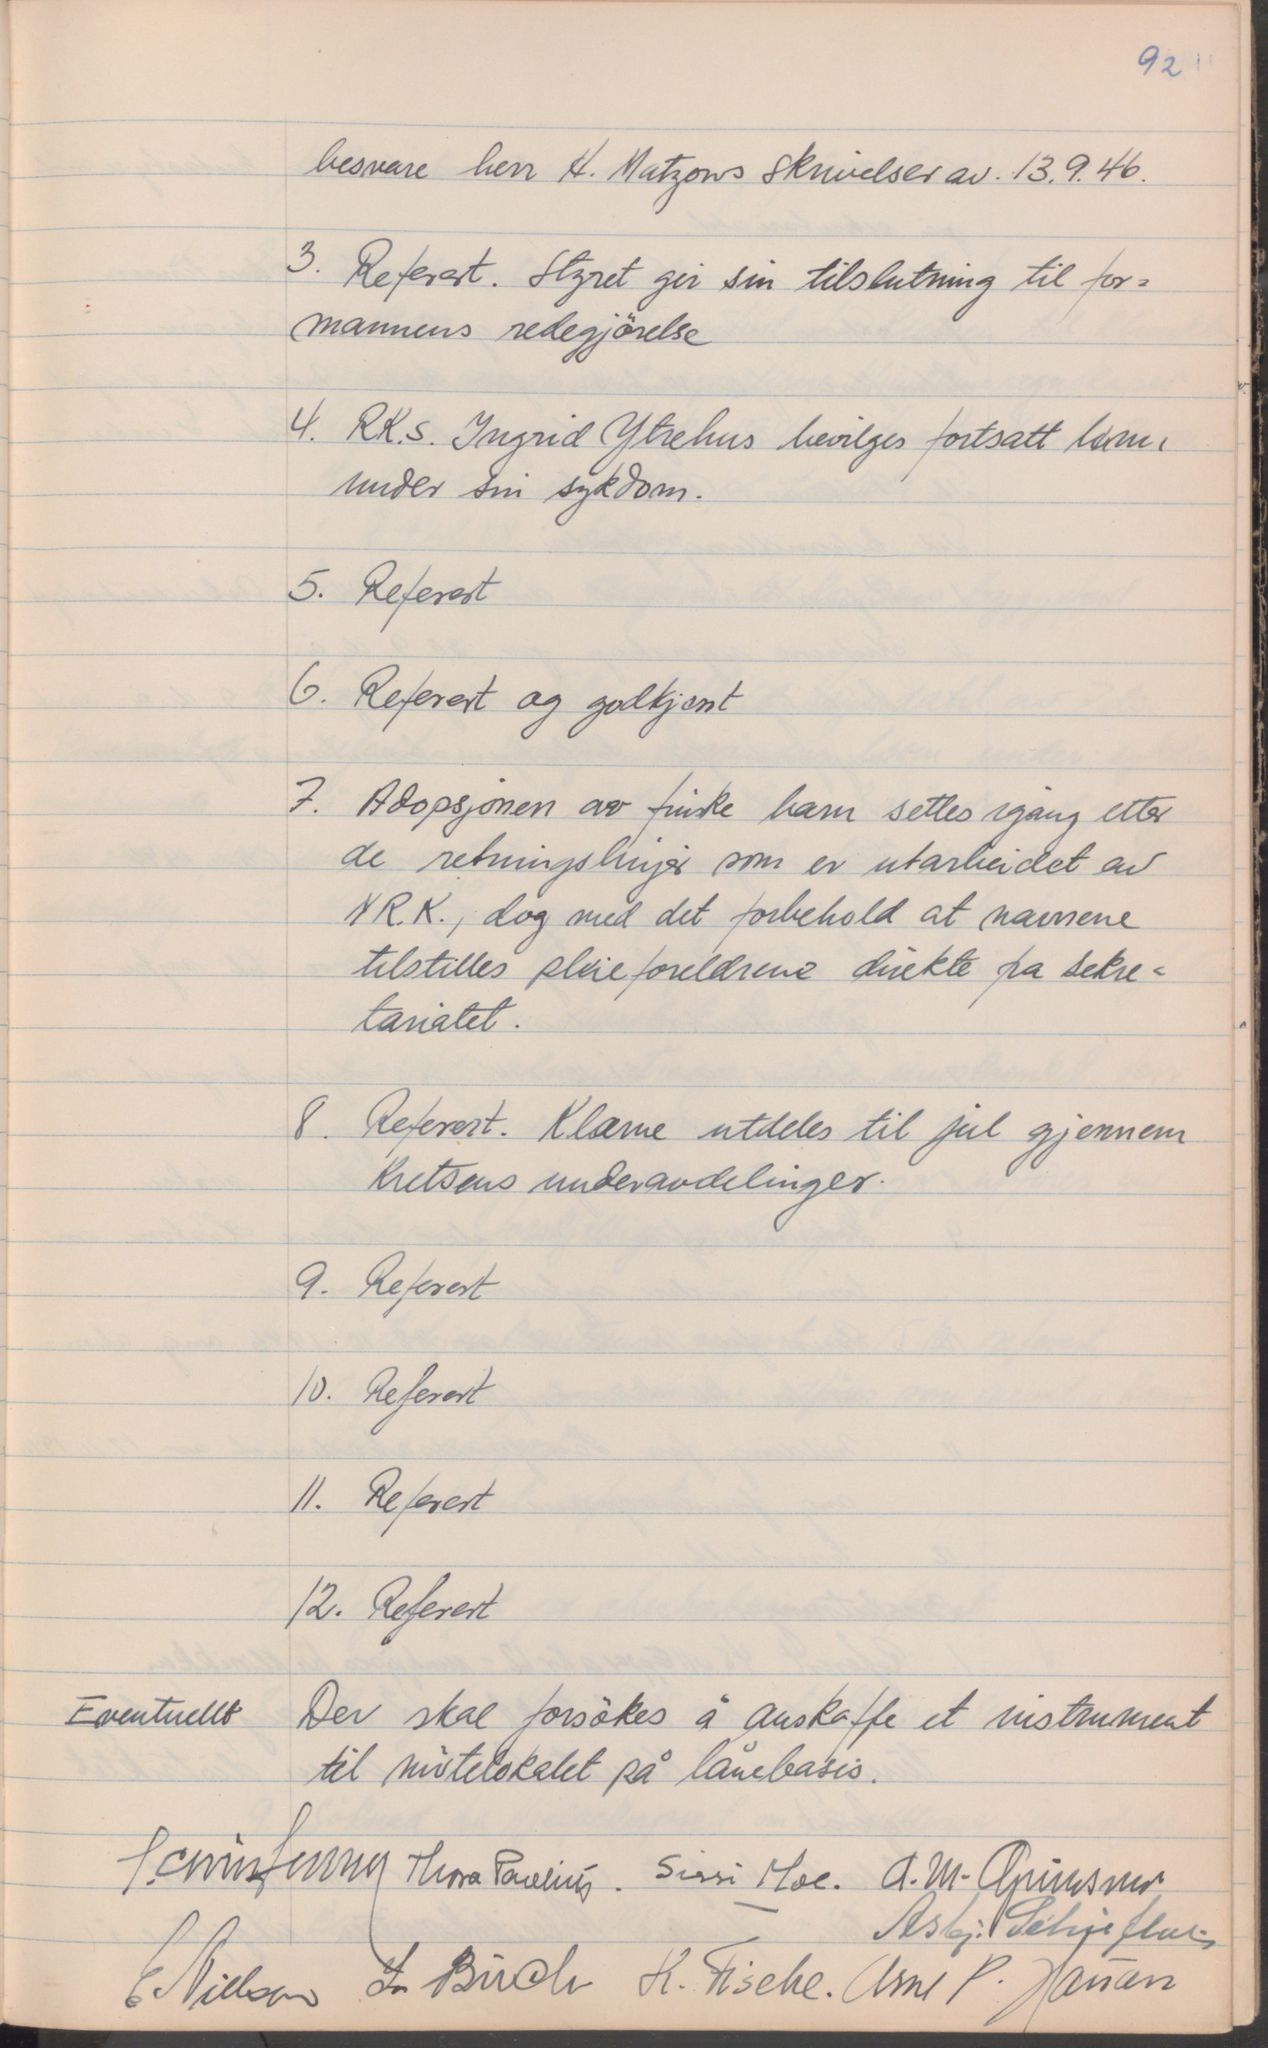 92
besvare herr H. Matzows skrivelser av. 13.9.46.
3. Referert. Styret gir sin tilslutning til for=
mannens redegjörelse
4. R.K.S. Ingrid Ytrehus bevilges fortsatt lönn
under sin sykdom.
5. Referert
6. Referert og godkjent
7. Adopsjonen av finske barn settes igang etter
de retningslinjer som er utarbeidet av
N.R.K., dog med det forbehold at navnene
tilstilles pleieforeldrene direkte fra sekre=
tariatet.
8. Referert. Klærne utdeles til jul gjennem
Kretsens underavdelinger.
9. Referert
10. Referert
11. Referert
12. Referert
Eventuellt Der skal forsökes å anskaffe et instrument
til mötelokalet på lånebasis.
Thora Paulius. Sissi Moe. A.M.
Asbj.
E. Nielsen Birch K. Fische. Arne P. Hansen